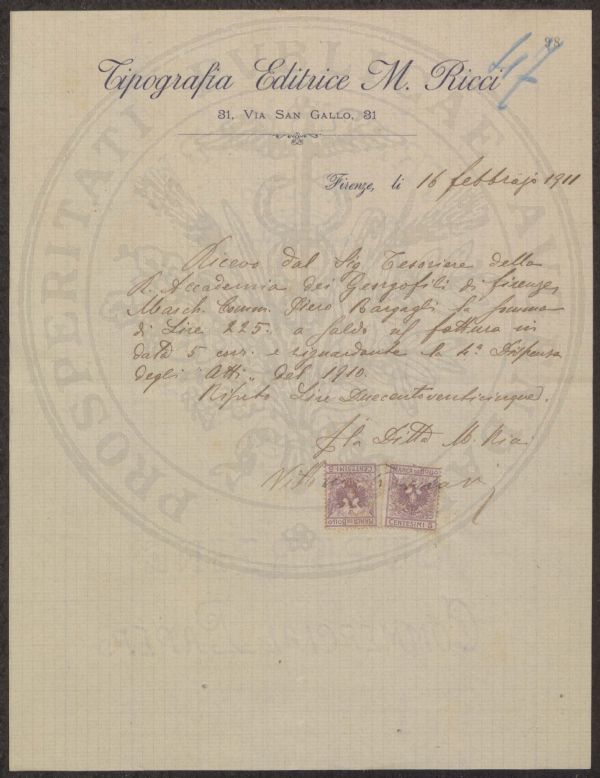 98
417
Tipografia Editrice M. Ricci
31, Via San Gallo, 31
Firenze, li 16 febbrajo 1911
Ricevo dal Sig Tesoriere della
R. Accademia dei Georgofili di Firenze,
March. Comm. Piero Bargagli la somma
di Lire 225. a saldo fattura in
data 5 corr. e riguardante la 4a Dispensa
degli "Atti" del 1910.
Ripeto Lire Duecentoventicinque.
p la Ditta M. Ricci
MARCA DA BOLLO
CENTESIMI 5
MARCA DA BOLLO
CENTESIMI 5
PROSPERITATI PUBLICAE AUGENDAE